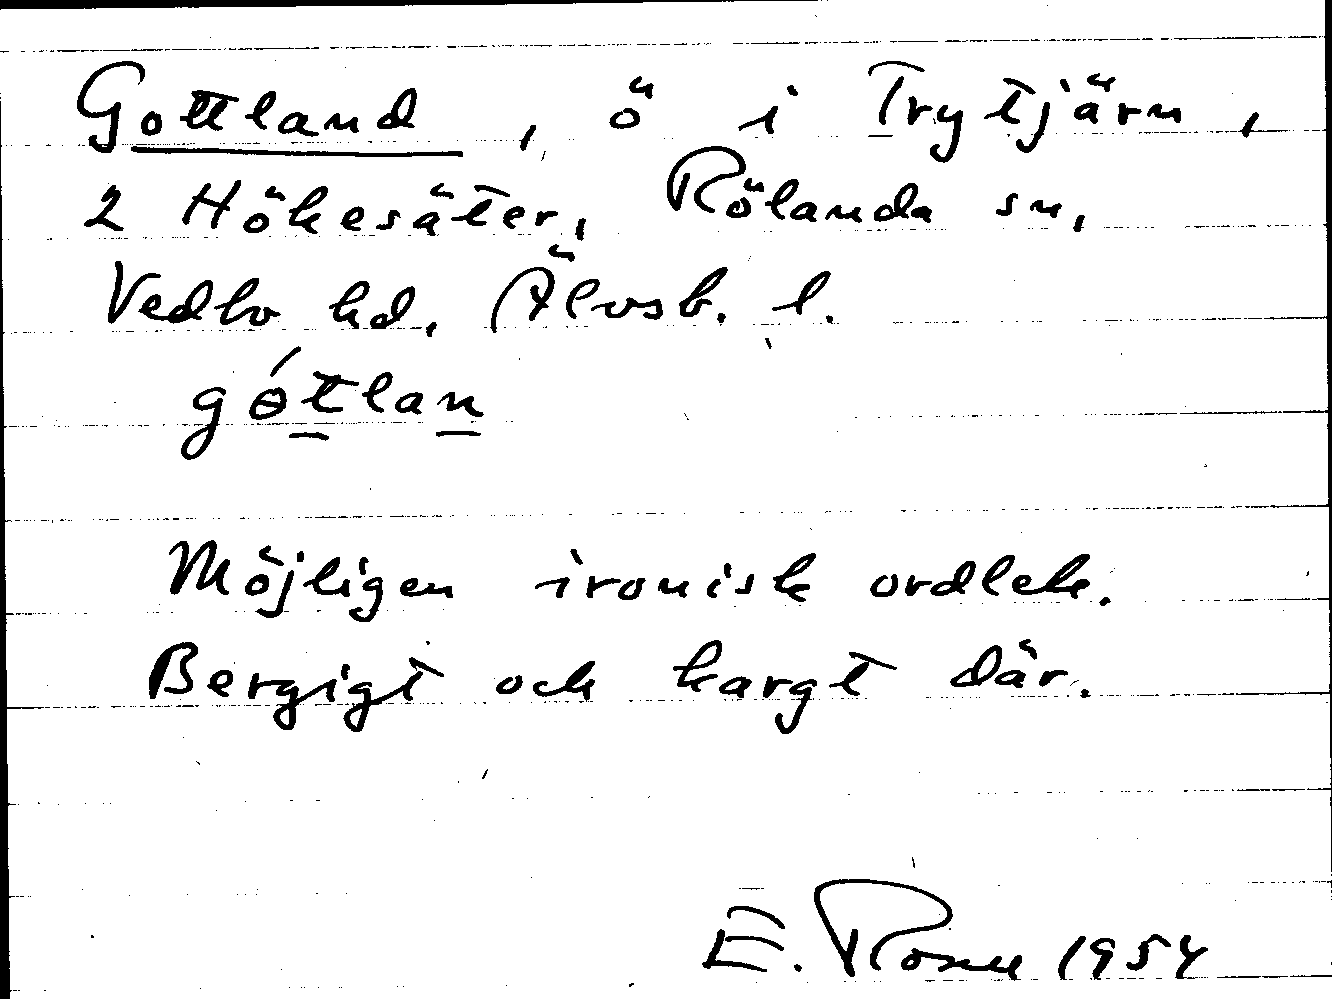 Gottland, ö i Trytjärn,
2 Hökesäter, Rölanda sn,
Vedbo hd, Älvsb. l.
gótlan
Möjligen ironisk ordlek.
Bergigt och kargt där.
E. Rosell 1954